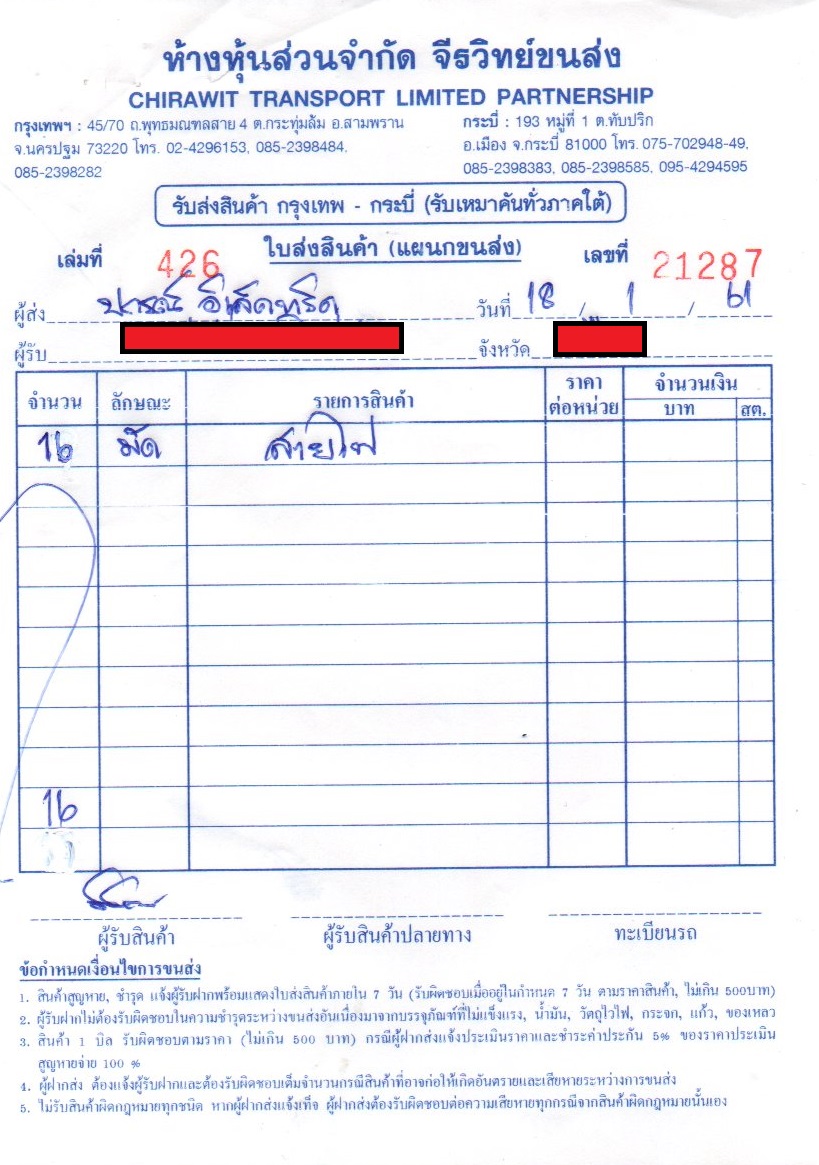 ห้างหุ้นส่วนจำกัด จีรวิทย์ขนส่ง
CHIRAWIT TRANSPORT LIMITED PARTNERSHIP
กรุงเทพฯ : 45/70 ถ.พุทธมณฑลสาย 4 ต.กระทุ่มล้ม อ.สามพราน
จ.นครปฐม 73220 โทร. 02-4296153, 085-2398484,
085-2398282
กระบี่ : 193 หมู่ที่ 1 ต.ทับปริก
อ.เมือง จ.กระบี่ 81000 โทร. 075-702948-49,
085-2398383, 085-2398585, 095-4294595
รับส่งสินค้า กรุงเทพ - กระบี่ (รับเหมาคันทั่วภาคใต้)
เล่มที่ 426 ใบส่งสินค้า (แผนกขนส่ง) เลขที่ 21287
ผู้ส่ง ปกรณ์ อีเล็คทริค วันที่ 18 / 1 / 61
ผู้รับ จังหวัด
จำนวน ลักษณะ รายการสินค้า ราคาต่อหน่วย จำนวนเงิน
บาท สต.
16 มัด สายไฟ
16
ผู้รับสินค้า ผู้รับสินค้าปลายทาง ทะเบียนรถ
ข้อกำหนดเงื่อนไขการขนส่ง
1. สินค้าสูญหาย, ชำรุด แจ้งผู้รับฝากพร้อมแสดงใบส่งสินค้าภายใน 7 วัน (รับผิดชอบเมื่ออยู่ในกำหนด 7 วัน ตามราคาสินค้า, ไม่เกิน 500บาท)
2. ผู้รับฝากไม่ต้องรับผิดชอบในความชำรุดระหว่างขนส่งอันเนื่องมาจากบรรจุภัณฑ์ที่ไม่แข็งแรง, น้ำมัน, วัตถุไวไฟ, กระจก, แก้ว, ของเหลว
3. สินค้า 1 บิล รับผิดชอบตามราคา (ไม่เกิน 500 บาท) กรณีผู้ฝากส่งแจ้งประเมินราคาและชำระค่าประกัน 5% ของราคาประเมิน
สูญหายจ่าย 100 %
4. ผู้ฝากส่ง ต้องแจ้งผู้รับฝากและต้องรับผิดชอบเต็มจำนวนกรณีสินค้าที่อาจก่อให้เกิดอันตรายและเสียหายระหว่างการขนส่ง
5. ไม่รับสินค้าผิดกฎหมายทุกชนิด หากผู้ฝากส่งแจ้งเท็จ ผู้ฝากส่งต้องรับผิดชอบต่อความเสียหายทุกกรณีจากสินค้าผิดกฎหมายนั้นเอง